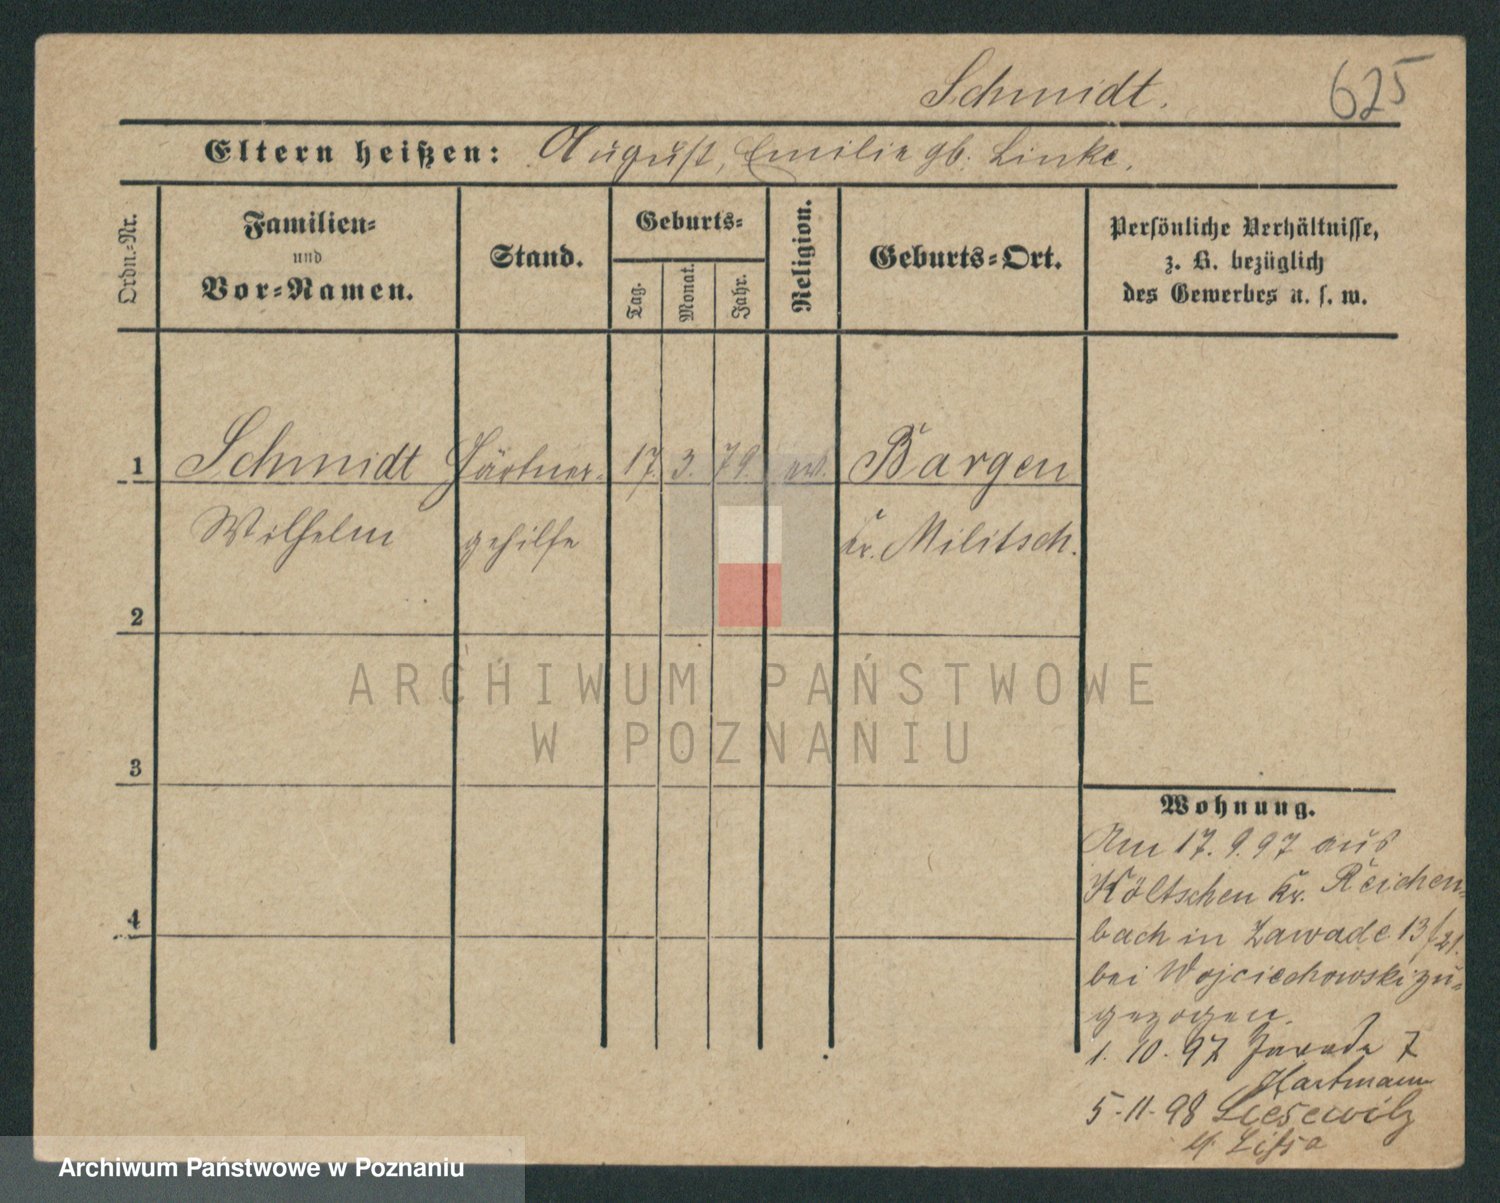 Schmidt.
625
Eltern heißen: August, Emilie gb. Linke.
Ordn.-Nr.
Familien-
und
Vor-Namen.
Stand.
Geburts-
Tag.
Monat.
Jahr.
Religion.
Geburts-Ort.
Persönliche Verhältnisse,
z. B. bezüglich
des Gewerbes u. s. w.
1 Schmidt Gärtner- 17. 3. 79. ev. Bargen
Wilhelm gehilfe Kr. Militsch.
2
3
4
ARCHIWUM PAŃSTWOWE
W POZNANIU
Wohnung.
Am 17. 9. 97 aus
Költschen Kr. Reichen-
bach in Zawade 13/21.
bei Wojciechowski zu-
gezogen.
1. 10. 97 Zawade 7
Hartmann
5-11-98
Lissa
Archiwum Państwowe w Poznaniu